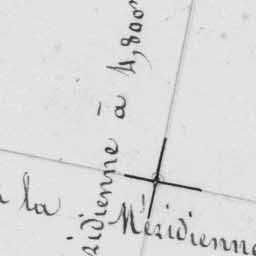 ridienne à 4,800
la Méridienne